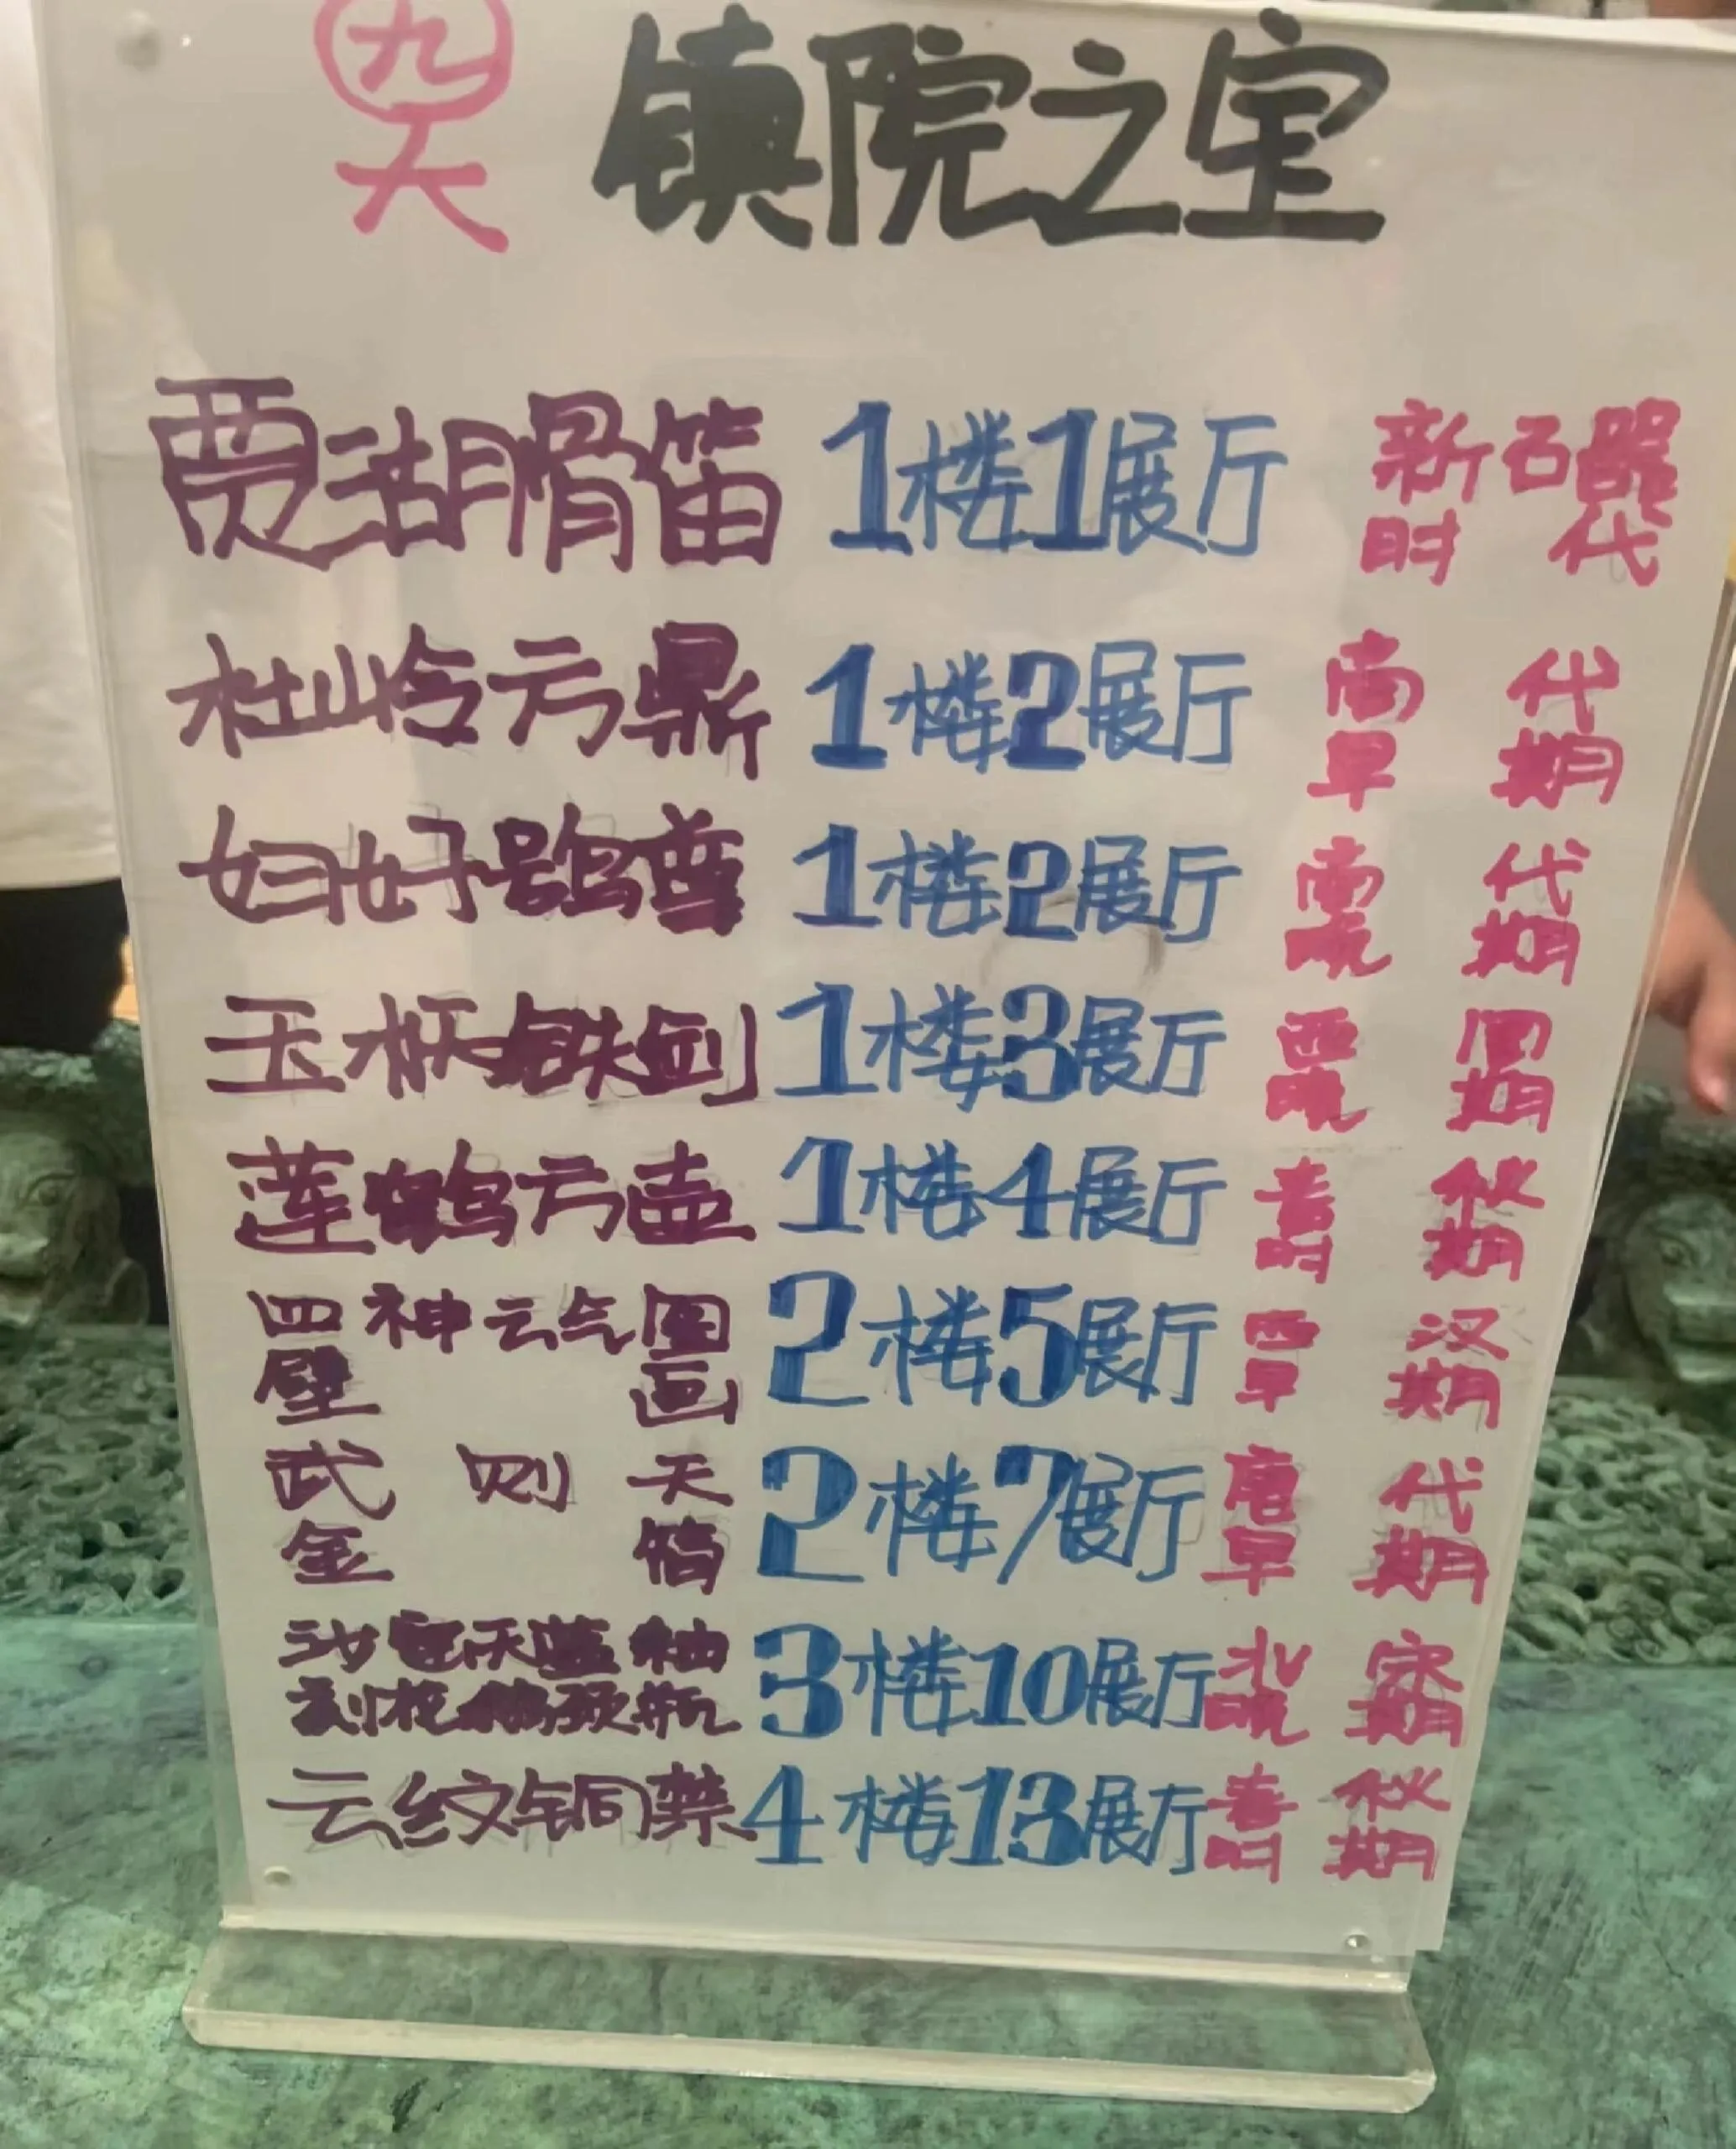 九大 镇院之宝
贾湖骨笛 1楼1展厅 新石器时代
杜岭方鼎 1楼2展厅 商代早期
妇好鸮尊 1楼2展厅 商代晚期
玉柄铁剑 1楼3展厅 西周晚期
莲鹤方壶 1楼4展厅 春秋时期
四神云气图壁画 2楼5展厅 西汉早期
武则天金简 2楼7展厅 唐代早期
汝窑天蓝釉刻花鹅颈瓶 3楼10展厅 北宋晚期
云纹铜禁 4楼13展厅 春秋时期